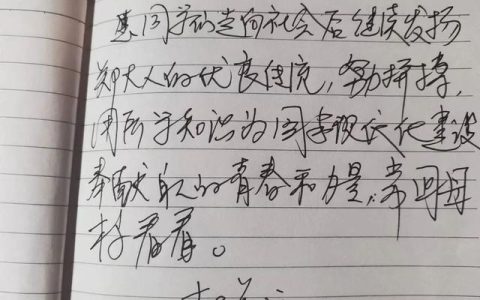 愿同学们走向社会后继续发扬
郑大人的优良传统，勤拼搏，
用所学知识为国家现代化建设
奉献自己的青春和力量，常回母
校看看。